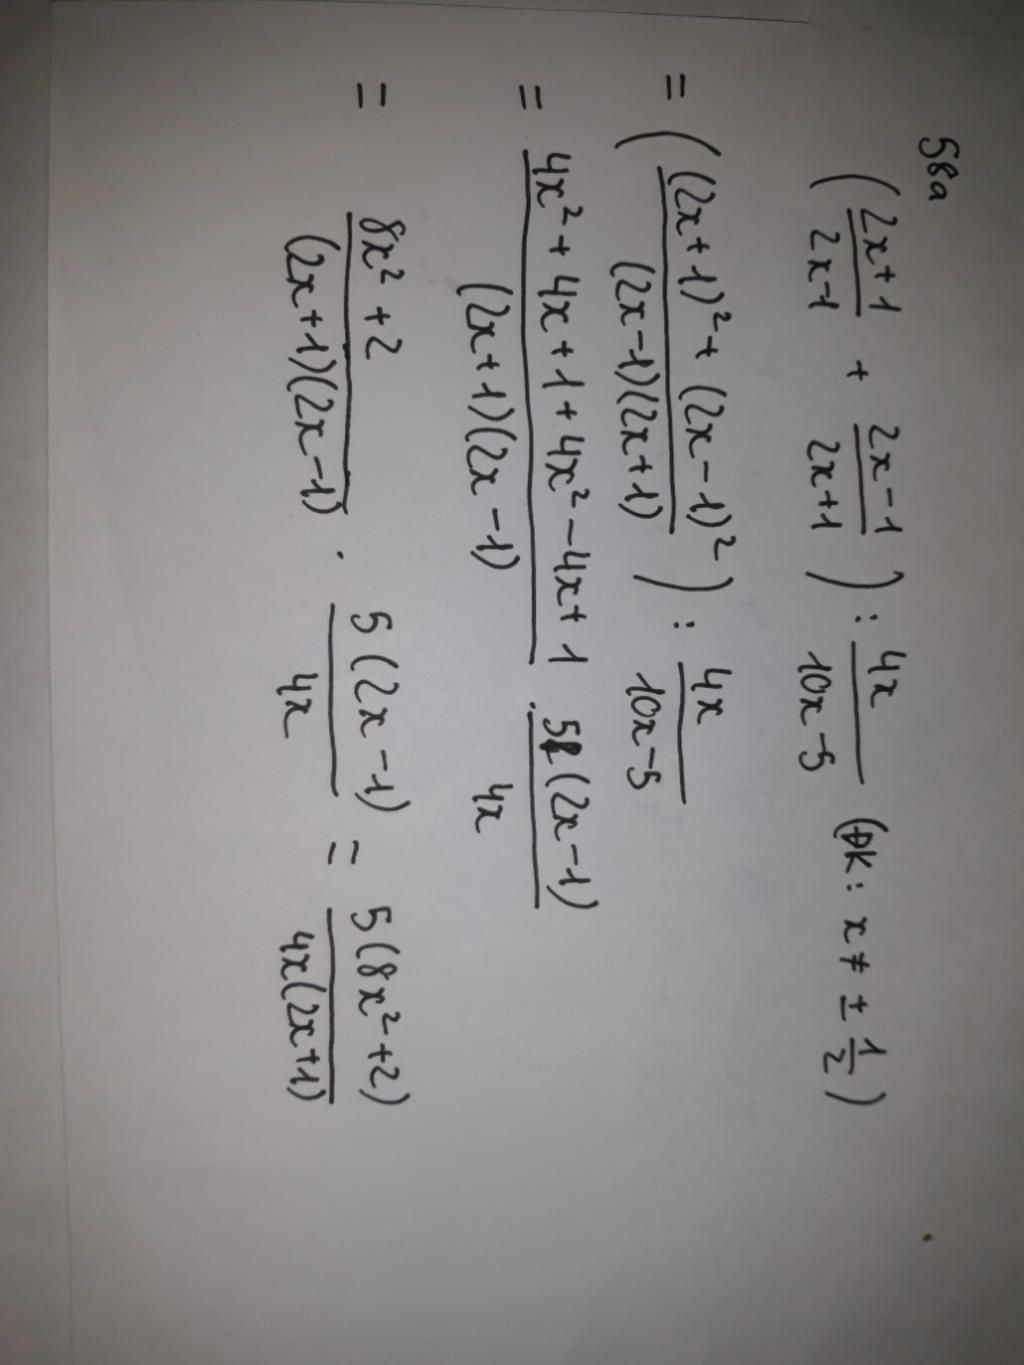 58a
( (2x+1)/(2x-1) + (2x-1)/(2x+1) ) : 4x/(10x-5) (ĐK: x ≠ ± 1/2)
= ( ((2x+1)² + (2x-1)²)/((2x-1)(2x+1)) ) : 4x/(10x-5)
= (4x² + 4x + 1 + 4x² - 4x + 1)/((2x+1)(2x-1)) . 5(2x-1)/4x
= (8x² + 2)/((2x+1)(2x-1)) . 5(2x-1)/4x = 5(8x²+2)/(4x(2x+1))